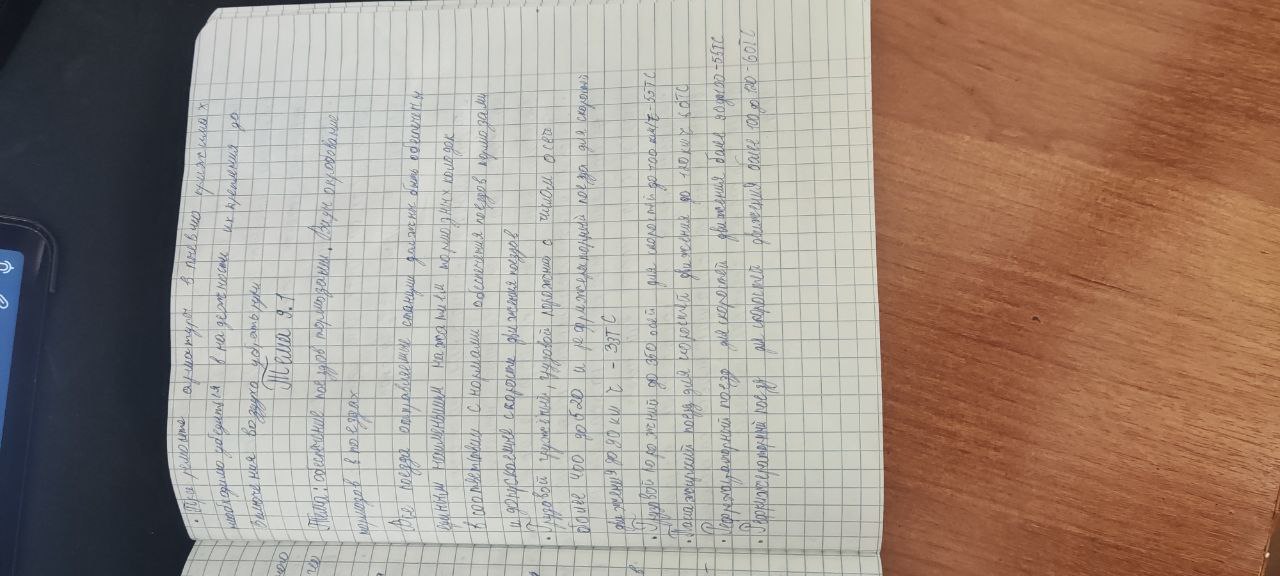 • При ремонте арматуры в пневмо нужима х
необходимо убедиться в надежности их крепления до
включения воздуха убрать руки
Тема 9.1
Тема: обеспечение поездов тормозами. Виды опробование
тормозов в поездах
Все поезда отправляемые станции должны быть обеспечены
единым наименьшим нажатием тормозных колодок
в соответствии с нормами обеспечения поездов тормозами
и допускаемые скорости движения поездов
• Грузовой груженый, грузовой порожний с числом осей
более 400 до 520 и рефрижераторный поезд для скоростей
движения до 90 км ч - 33ТС
• Грузовой порожний до 350 осей для скоростей до 100 км/ч - 55ТС
• Пассажирский поезд для скоростей движения до 120 км ч 60ТС
• Рефрижераторный поезд для скоростей движения более 90 до 100-55ТС
• Рефрижераторный поезд для скоростей движения более 100 до 120-60ТС